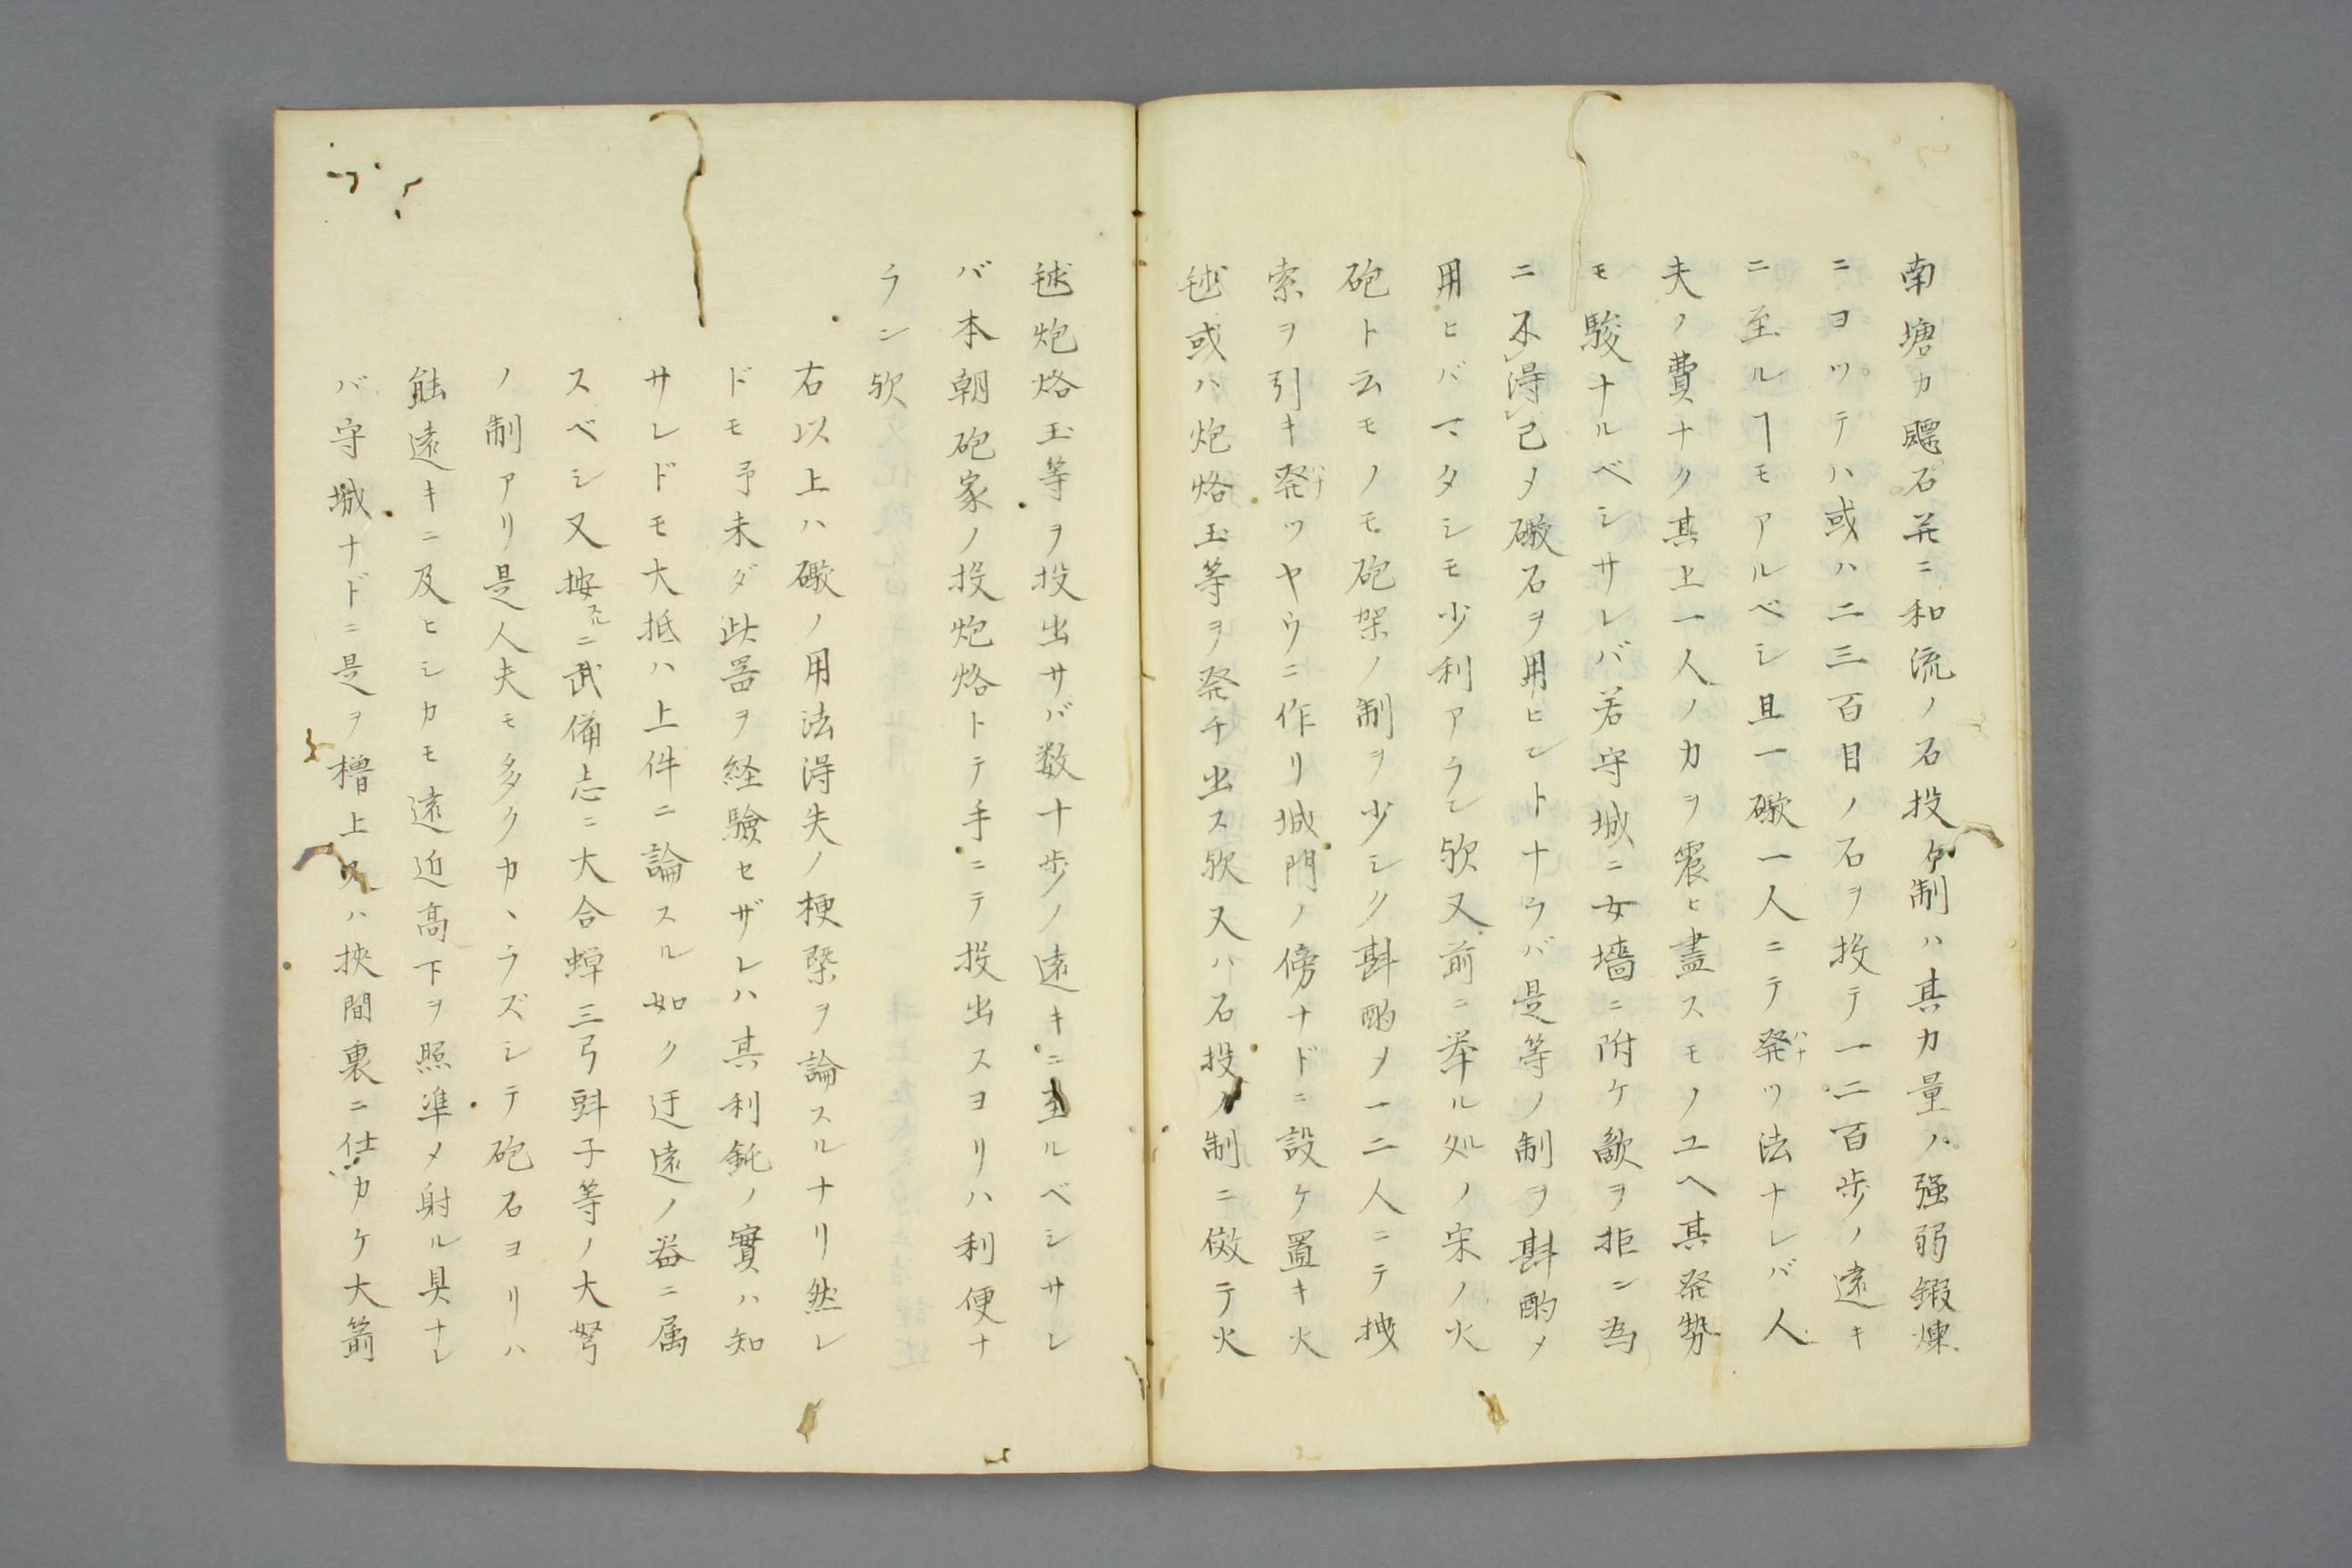 南塘カ飃石并ニ和流ノ石投ケ制ハ其力量ノ强弱鍜煉
ニヨツテハ或ハ二三百目ノ石ヲ投テ一二百歩ノ遠キ
ニ至ルヿモアルベシ且一礮一人ニテ発ハナツ法ナレバ人
夫ノ費ナク其上一人ノカヲ震ヒ盡スモノユヘ其発勢
モ駿ナルベシサレバ若守城ニ女墻ニ附ケ敵ヲ拒ン為
ニ不得已〆礮石ヲ用ヒントナラバ是等ノ制ヲ斟酌〆
用ヒバマタシモ少利アラン欤又前ニ举ル処ノ宋ノ火
砲ト云モノモ砲架ノ制ヲ少シク斟酌〆一二人ニテ拽
索ヲ引キ発ハナツヤウニ作リ城門ノ傍ナドニ設ケ置キ火
毬或ハ炮烙玉等ヲ発チ出ス欤又ハ石投ノ制ニ倣テ火
毬炮烙玉等ヲ投出サバ数十歩ノ遠キニ至ルベシサレ
バ本朝砲家ノ投炮烙トテ手ニテ投出スヨリハ利便ナ
ラン欤
右以上ハ礮ノ用法淂失ノ梗槩ヲ論スルナリ然レ
ドモ予未ダ此噐ヲ経驗セザレハ其利鈍ノ實ハ知
サレドモ大抵ハ上件ニ論スル如ク迂遠ノ器ニ属
スベシ又按スルニ武備志ニ大合蟬三弓㪷子等ノ大弩
ノ制アリ是人夫モ多クカヽラズシテ砲石ヨリハ
能遠キニ及ヒシカモ遠近高下ヲ照準〆射ル具ナレ
バ守城ナドニ是ヲ櫓上又ハ挾間裏ニ仕カケ大箭